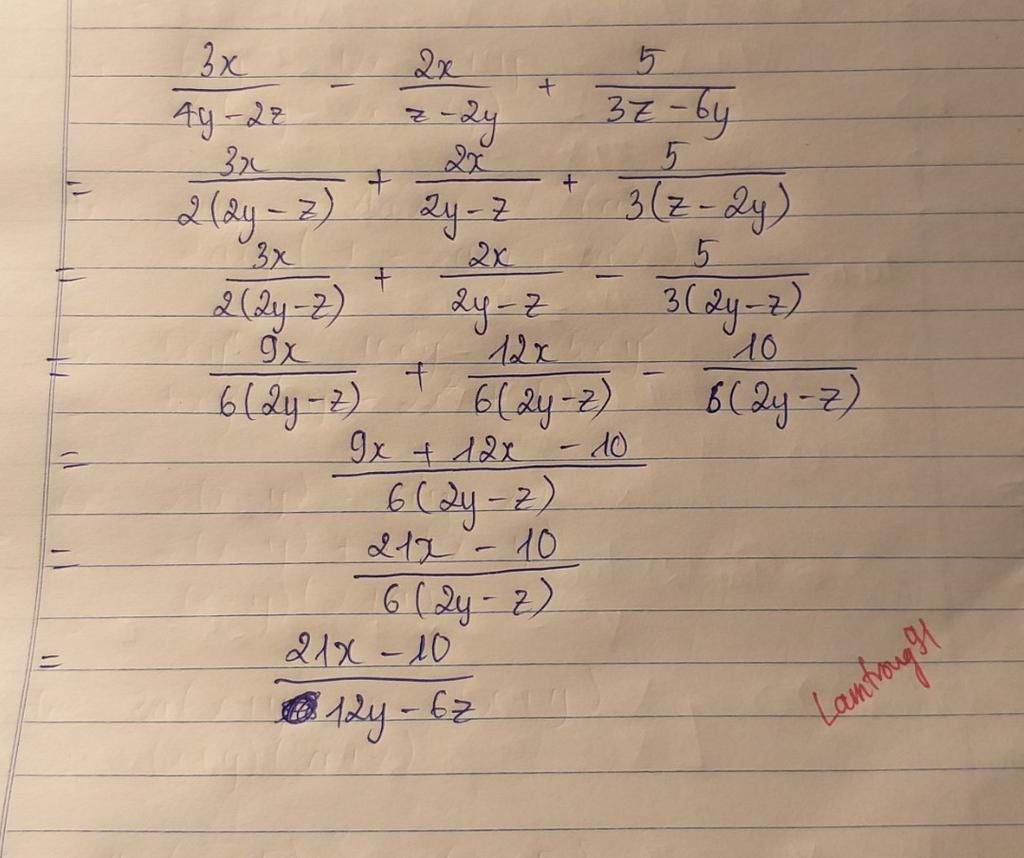 3x/(4y-2z) - 2x/(z-2y) + 5/(3z-6y)
= 3x/(2(2y-z)) + 2x/(2y-z) + 5/(3(z-2y))
= 3x/(2(2y-z)) + 2x/(2y-z) - 5/(3(2y-z))
= 9x/(6(2y-z)) + 12x/(6(2y-z)) - 10/(6(2y-z))
= (9x + 12x - 10)/(6(2y-z))
= (21x - 10)/(6(2y-z))
= (21x - 10)/(12y-6z)
Lamtroug91